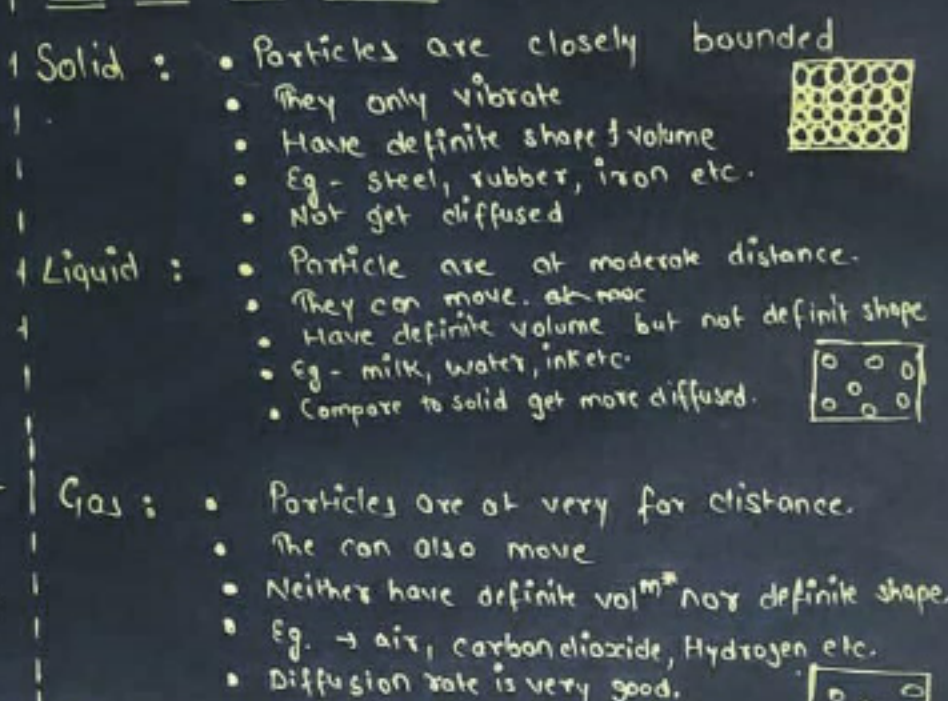 Solid : • Particles are closely bounded
• They only vibrate
• Have definite shape & volume
• Eg - steel, rubber, iron etc.
• Not get diffused
Liquid : • Particle are at moderate distance.
• They can move. at moc
• Have definite volume but not definit shape
• Eg - milk, water, ink etc.
• Compare to solid get more diffused.
Gas : • Particles are at very far distance.
• The can also move
• Neither have definite volᵐᵉ nor definite shape.
• Eg. → air, carbon dioxide, Hydrogen etc.
• Diffusion rate is very good.